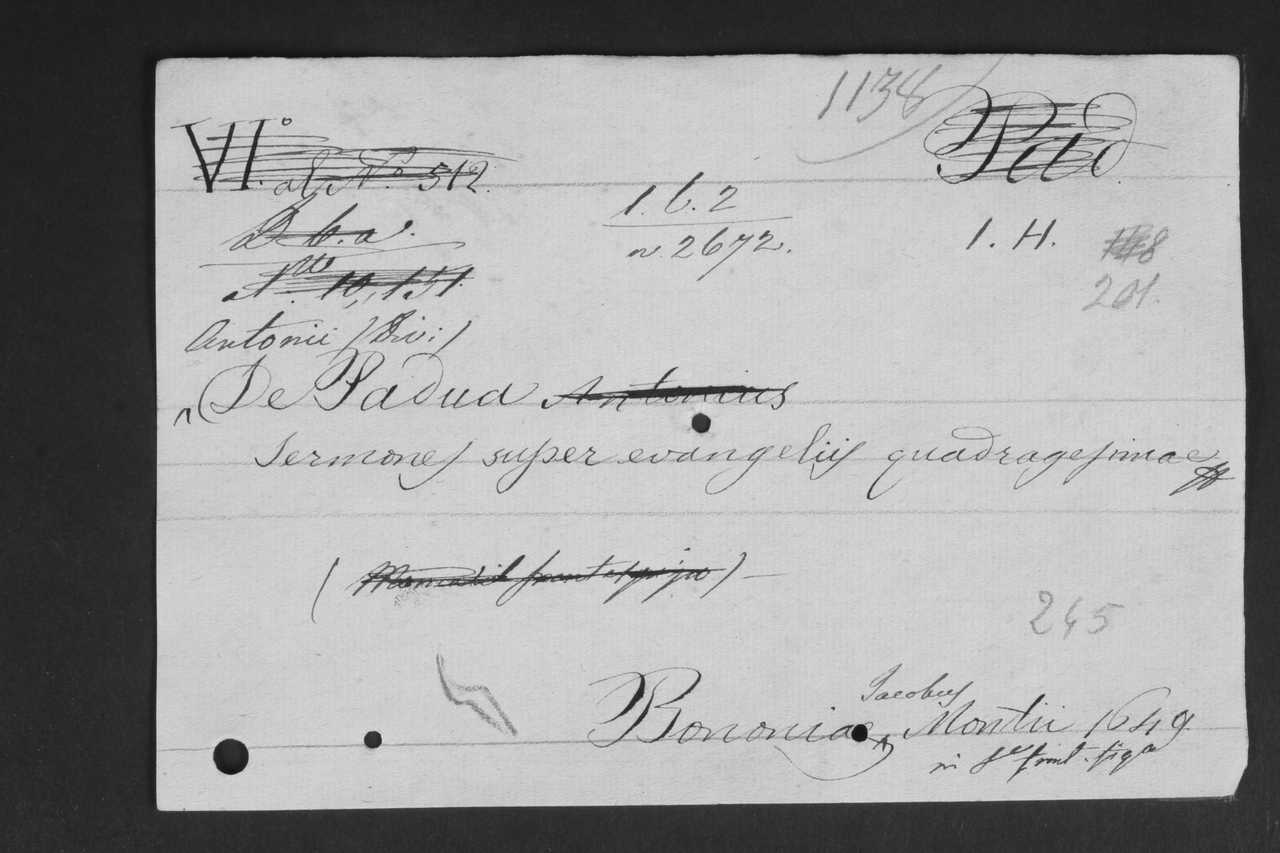 1138
VI.° al N° 512. Pad
D b. a. 1. 6. 2 1. H. 8
N.ro 10,,151. n. 2672. 201.
Antonii (Divi:)
De Padua Antonius
Sermones super evangeliis quadragesimae
( )
245
Jacobus
Bononiae, Montii 1649
in f.° front. fig.°